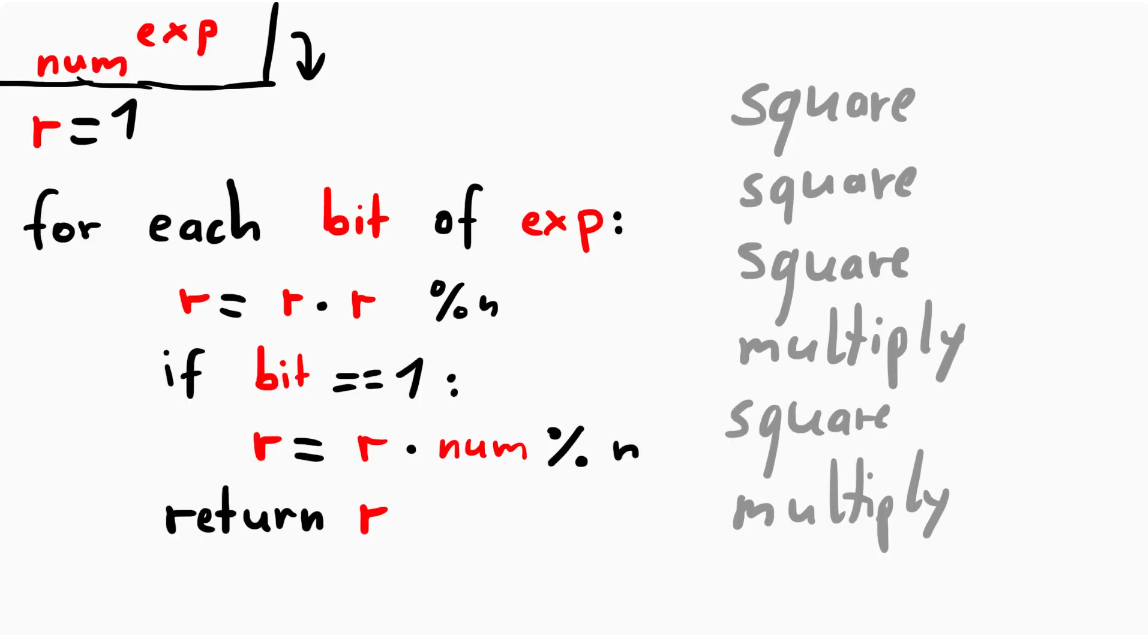 num^exp
r = 1
for each bit of exp:
r = r · r % n
if bit == 1:
r = r · num % n
return r
square
square
square
multiply
square
multiply